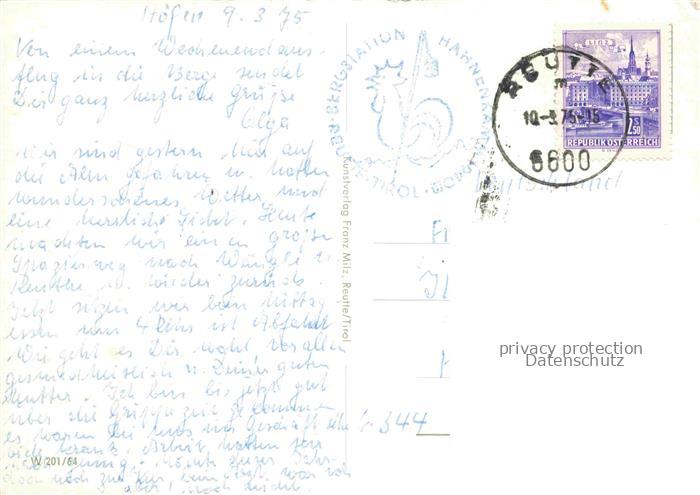 Höfen 9.3.75
Von einem Wochenendaus-
flug in die Berge sendet
Dir ganz herzliche Grüsse
Olga
Wir sind gestern hier auf
die Alm gefahren u. hatten
wunderschönes Wetter und
eine herrliche Sicht. Heute
machten wir einen großen
Spazierweg nach Wängle u.
Reutte u. wieder zurück.
Jetzt sitzen wir beim Mittag
essen um 4 Uhr ist Abfahrt
Wie geht es Dir wohl vor allem
gesundheitlich u. Deiner guten
Mutter. Ich bin bis jetzt gut
über die Grippezeit gekommen
es waren bei uns im Geschäft sehr
viele krank. Arbeit hatten wir
W 201/64
BERGSTATION HAHNENKAMM
TIROL
REUTTE
10.-3.75-15
6600
LINZ
S 2.50
REPUBLIK ÖSTERREICH
Deutschland
Kunstverlag Franz Milz, Reutte/Tirol
344
privacy protection
Datenschutz